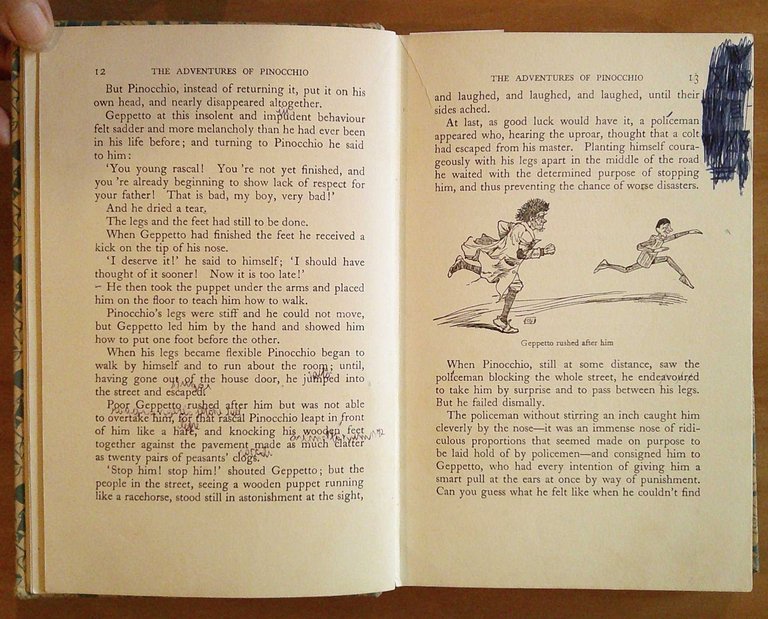 12 THE ADVENTURES OF PINOCCHIO
But Pinocchio, instead of returning it, put it on his
own head, and nearly disappeared altogether.
Geppetto at this insolent and impudent behaviour
felt sadder and more melancholy than he had ever been
in his life before; and turning to Pinocchio he said
to him:
'You young rascal! You 're not yet finished, and
you 're already beginning to show lack of respect for
your father! That is bad, my boy, very bad!'
And he dried a tear.
The legs and the feet had still to be done.
When Geppetto had finished the feet he received a
kick on the tip of his nose.
'I deserve it!' he said to himself; 'I should have
thought of it sooner! Now it is too late!'
He then took the puppet under the arms and placed
him on the floor to teach him how to walk.
Pinocchio's legs were stiff and he could not move,
but Geppetto led him by the hand and showed him
how to put one foot before the other.
When his legs became flexible Pinocchio began to
walk by himself and to run about the room; until,
having gone out of the house door, he jumped into
the street and escaped.
Poor Geppetto rushed after him but was not able
to overtake him, for that rascal Pinocchio leapt in front
of him like a hare, and knocking his wooden feet
together against the pavement made as much clatter
as twenty pairs of peasants' clogs.
'Stop him! stop him!' shouted Geppetto; but the
people in the street, seeing a wooden puppet running
like a racehorse, stood still in astonishment at the sight,
THE ADVENTURES OF PINOCCHIO 13
and laughed, and laughed, and laughed, until their
sides ached.
At last, as good luck would have it, a policeman
appeared who, hearing the uproar, thought that a colt
had escaped from his master. Planting himself coura-
geously with his legs apart in the middle of the road
he waited with the determined purpose of stopping
him, and thus preventing the chance of worse disasters.
Geppetto rushed after him
When Pinocchio, still at some distance, saw the
policeman blocking the whole street, he endeavoured
to take him by surprise and to pass between his legs.
But he failed dismally.
The policeman without stirring an inch caught him
cleverly by the nose—it was an immense nose of ridi-
culous proportions that seemed made on purpose to
be laid hold of by policemen—and consigned him to
Geppetto, who had every intention of giving him a
smart pull at the ears at once by way of punishment.
Can you guess what he felt like when he couldn't find